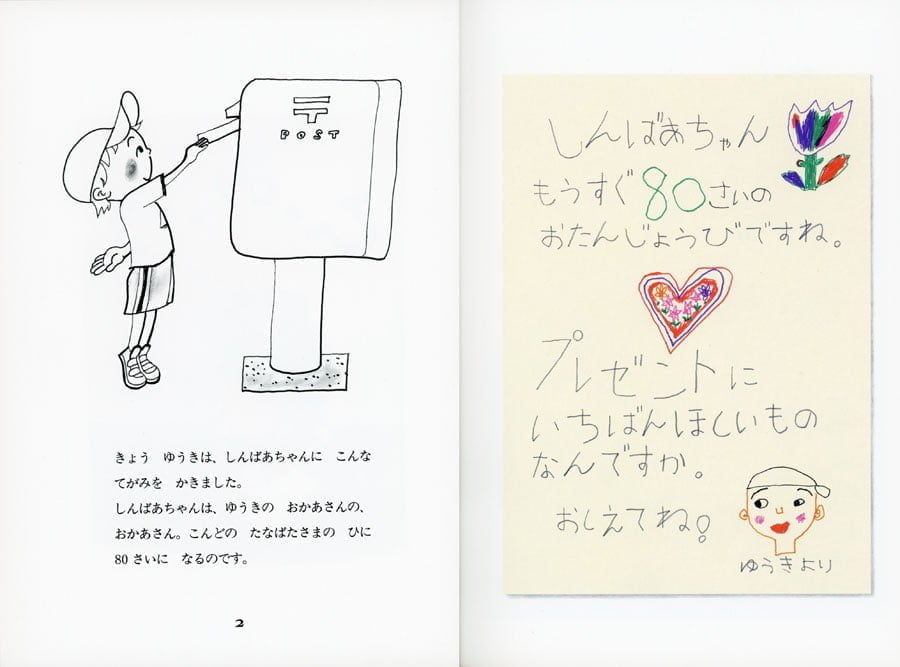 〒
POST
きょう　ゆうきは、しんばあちゃんに　こんな
てがみを　かきました。
しんばあちゃんは、ゆうきの　おかあさんの、
おかあさん。こんどの　たなばたさまの　ひに
80さいに　なるのです。
2
しんばあちゃん
もうすぐ80さいの
おたんじょうびですね。
プレゼントに
いちばんほしいもの
なんですか。
おしえてね!
ゆうきより